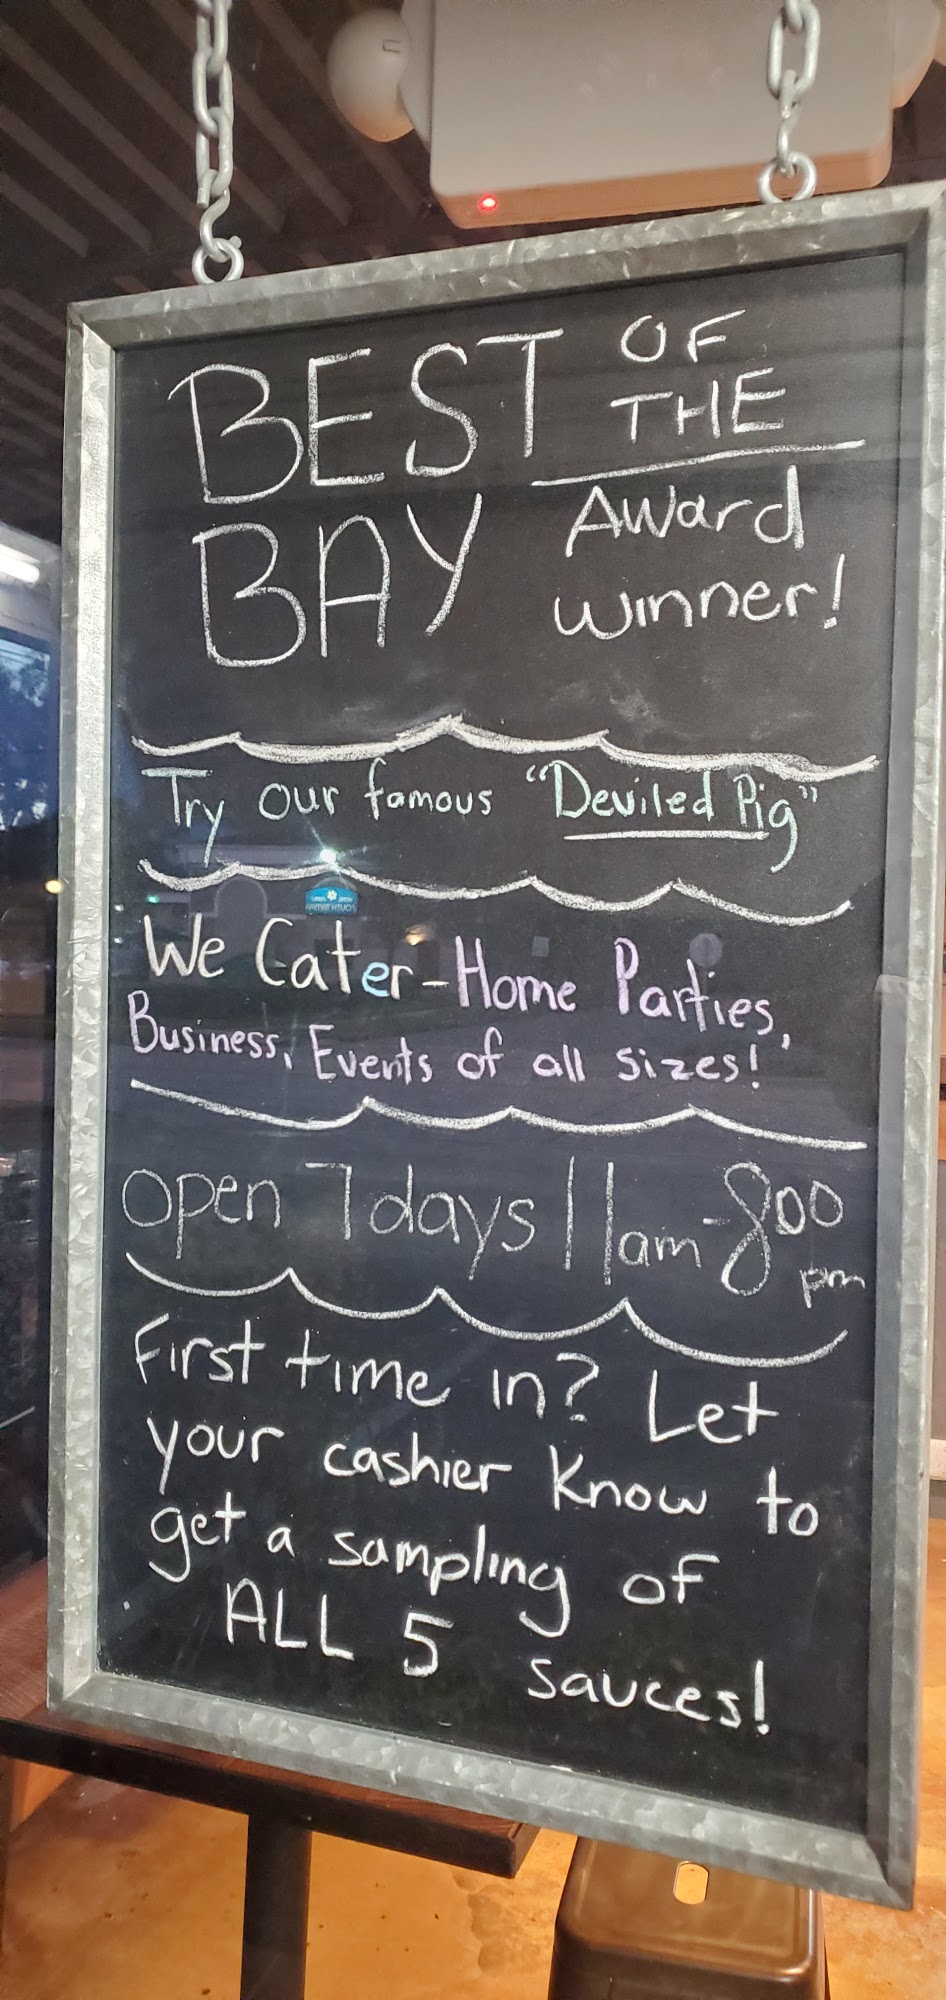 BEST OF THE
BAY Award
winner!
Try our famous "Deviled Pig"
We Cater-Home Parties,
Business, Events of all sizes!
Open 7 days 11am-800 pm
First time in? Let
your cashier know to
get a sampling of
ALL 5 sauces!